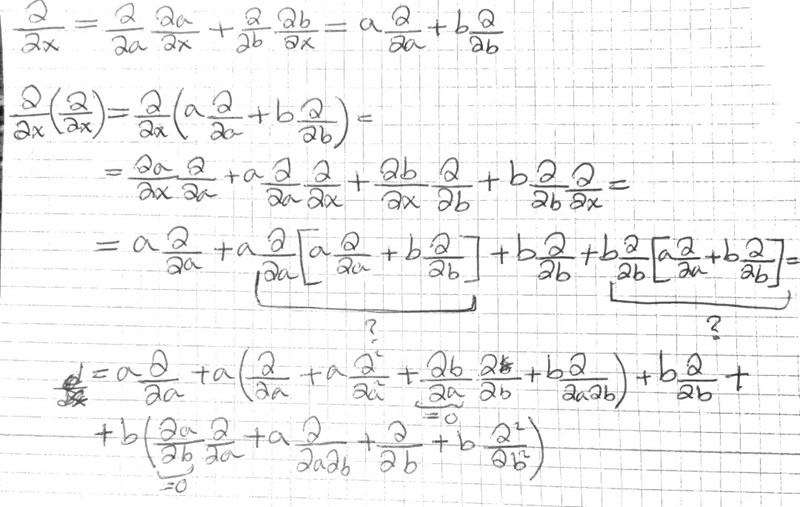 ∂/∂x = ∂/∂a ∂a/∂x + ∂/∂b ∂b/∂x = a ∂/∂a + b ∂/∂b
∂/∂x (∂/∂x) = ∂/∂x (a ∂/∂a + b ∂/∂b) =
= ∂a/∂x ∂/∂a + a ∂/∂a ∂/∂x + ∂b/∂x ∂/∂b + b ∂/∂b ∂/∂x =
= a ∂/∂a + a ∂/∂a [a ∂/∂a + b ∂/∂b] + b ∂/∂b + b ∂/∂b [a ∂/∂a + b ∂/∂b] =
? ?
= a ∂/∂a + a (∂/∂a + a ∂²/∂a² + ∂b/∂a ∂/∂b + b ∂/∂a∂b) + b ∂/∂b +
=0
+ b (∂a/∂b ∂/∂a + a ∂/∂a∂b + ∂/∂b + b ∂²/∂b²)
=0